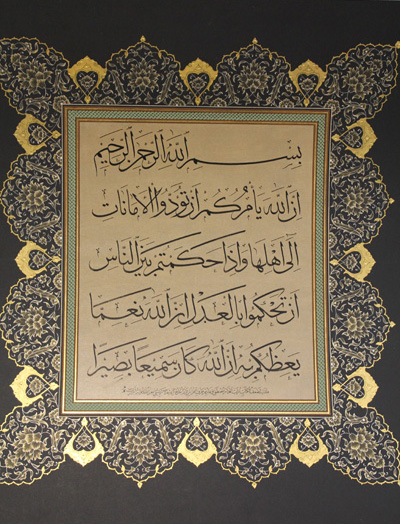 بسم الله الرحمن الرحيم
ان الله يامركم ان تؤدوا الامانات
الى اهلها واذا حكمتم بين الناس
ان تحكموا بالعدل ان الله نعما
يعظكم به ان الله كان سميعا بصيرا